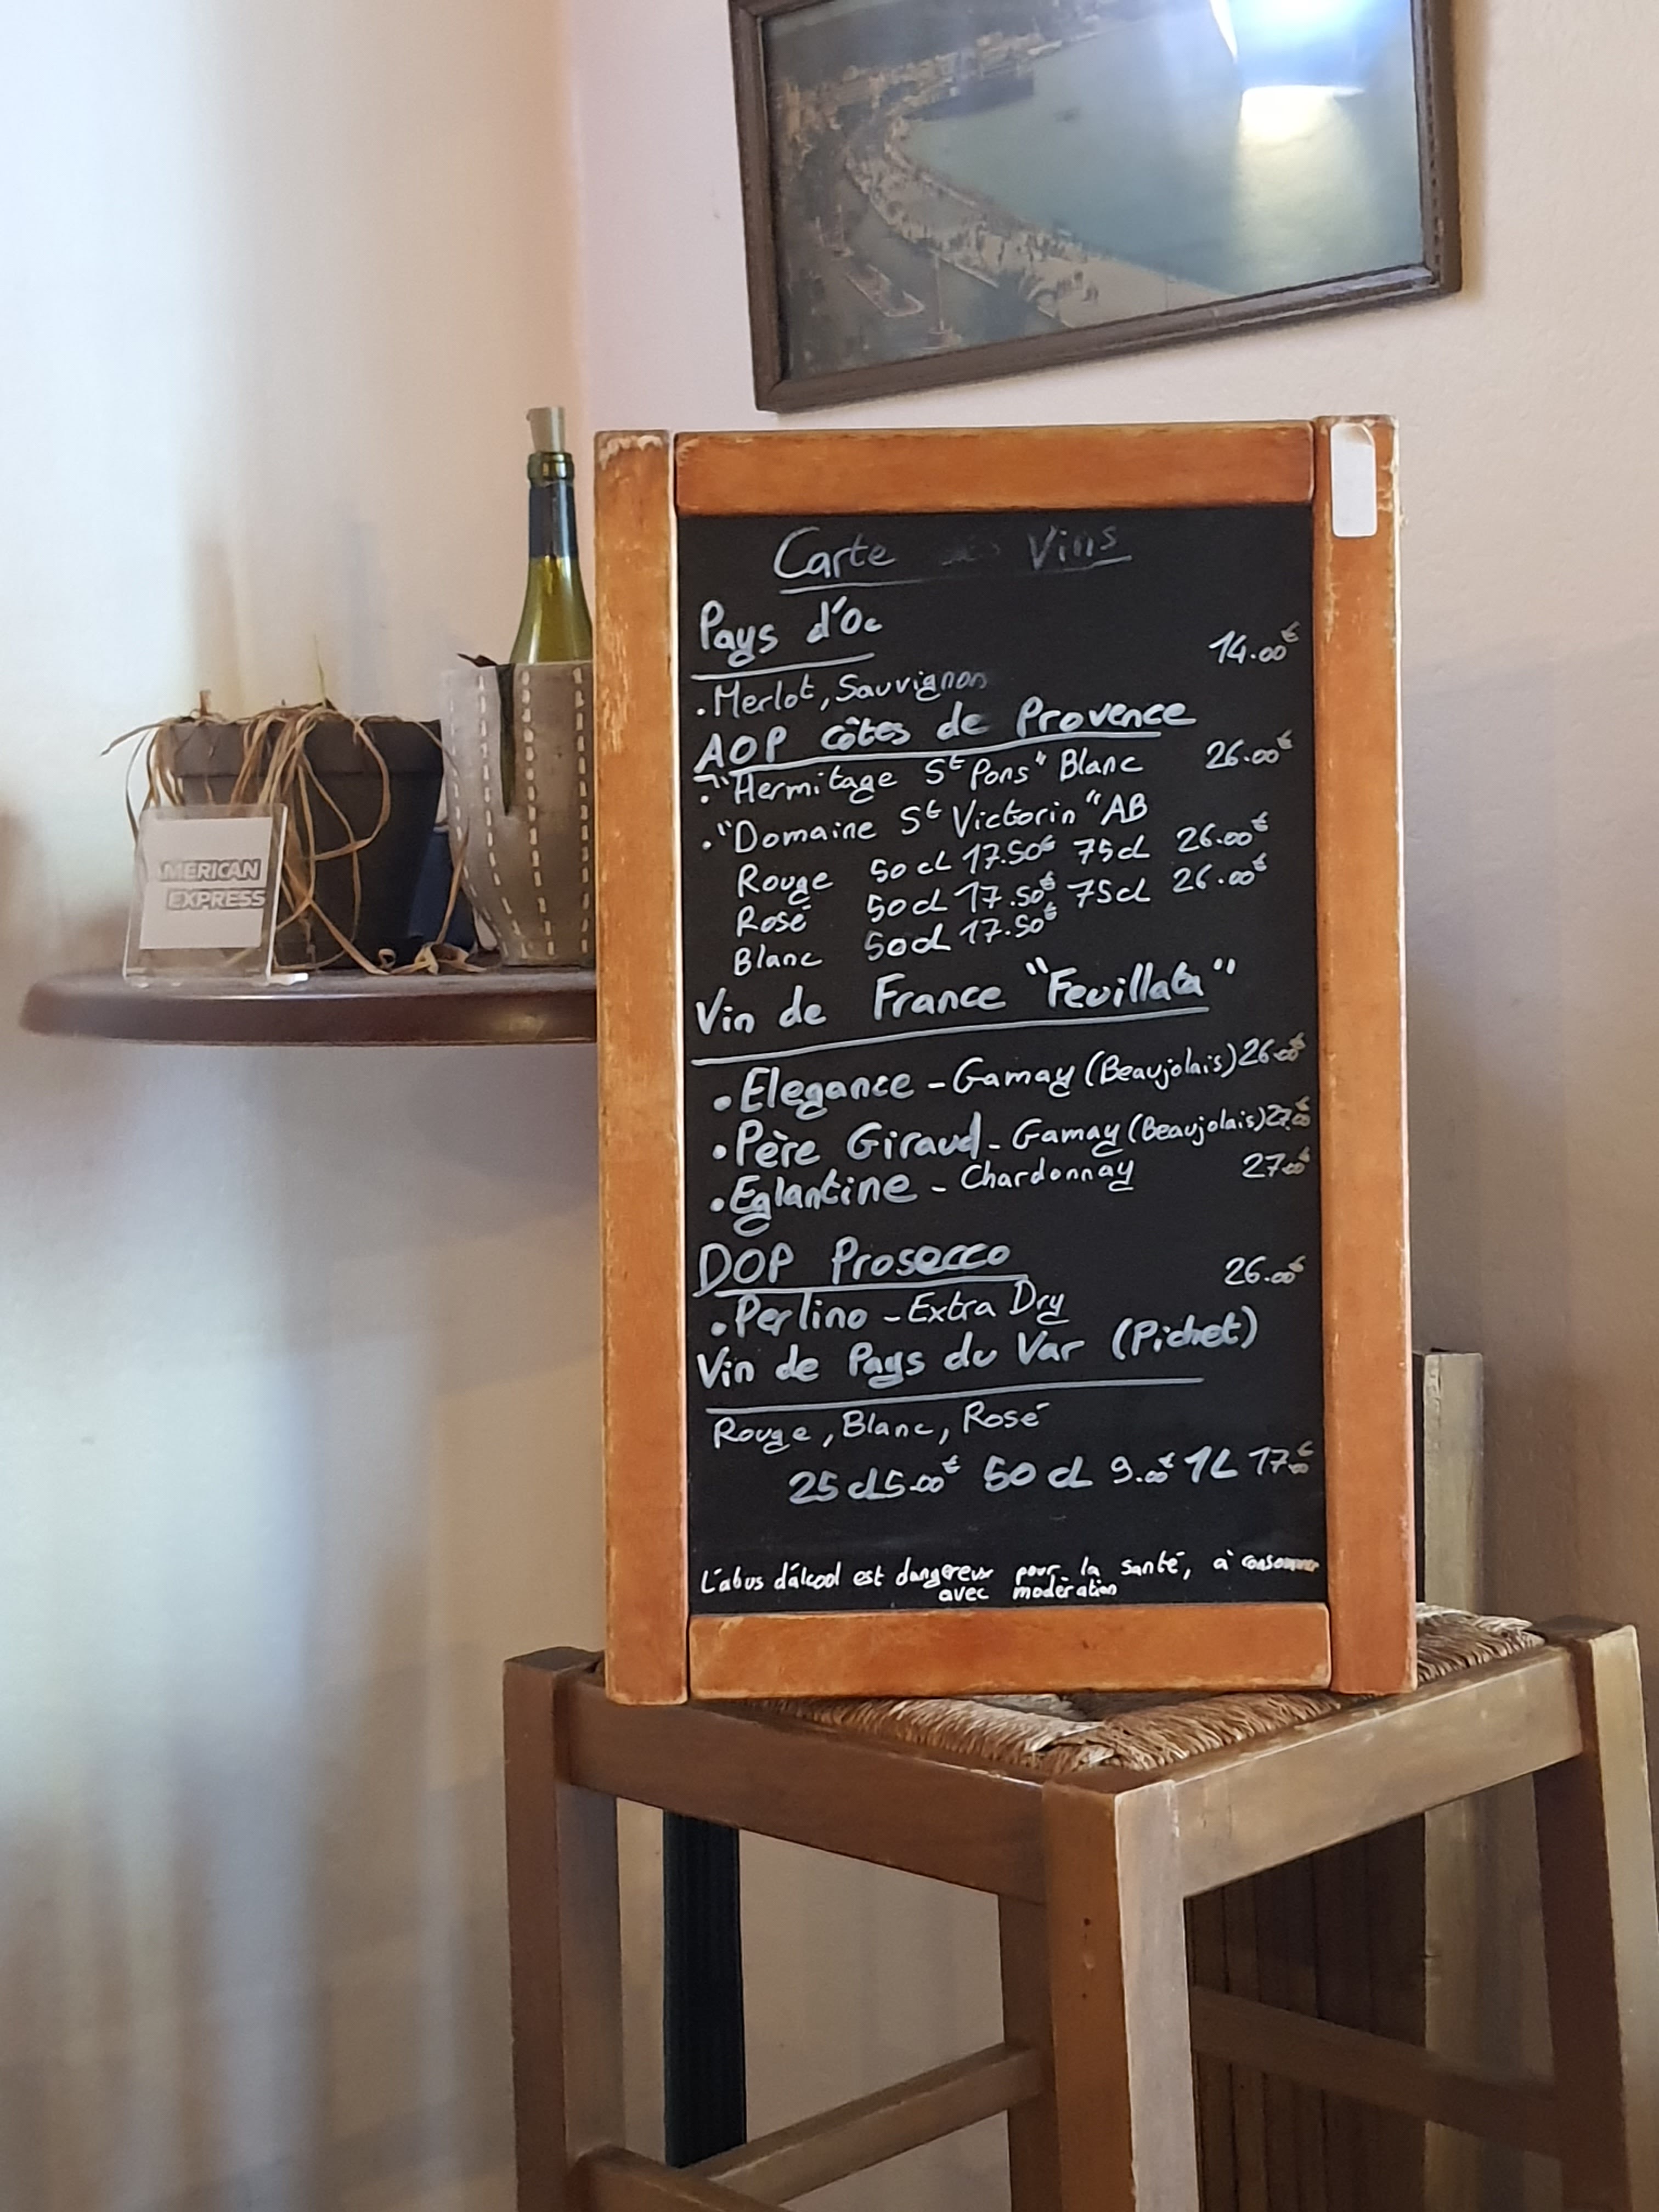 AMERICAN
EXPRESS
Carte des Vins
Pays d'Oc
. Merlot, Sauvignon 14.00€
AOP Côtes de Provence
. "Hermitage St Pons" Blanc 26.00€
. "Domaine St Victorin" AB
Rouge 50 cl 17.50€ 75 cl 26.00€
Rosé 50 cl 17.50€ 75 cl 26.00€
Blanc 50 cl 17.50€
Vin de France "Feuillata"
• Elegance - Gamay (Beaujolais) 26.00€
• Père Giraud - Gamay (Beaujolais) 27.00€
• Eglantine - Chardonnay 27.00€
DOP Prosecco
• Perlino - Extra Dry 26.00€
Vin de Pays du Var (Pichet)
Rouge, Blanc, Rosé
25 cl 5.00€ 50 cl 9.00€ 1L 17.00€
L'abus d'alcool est dangereux pour la santé, à consommer
avec modération